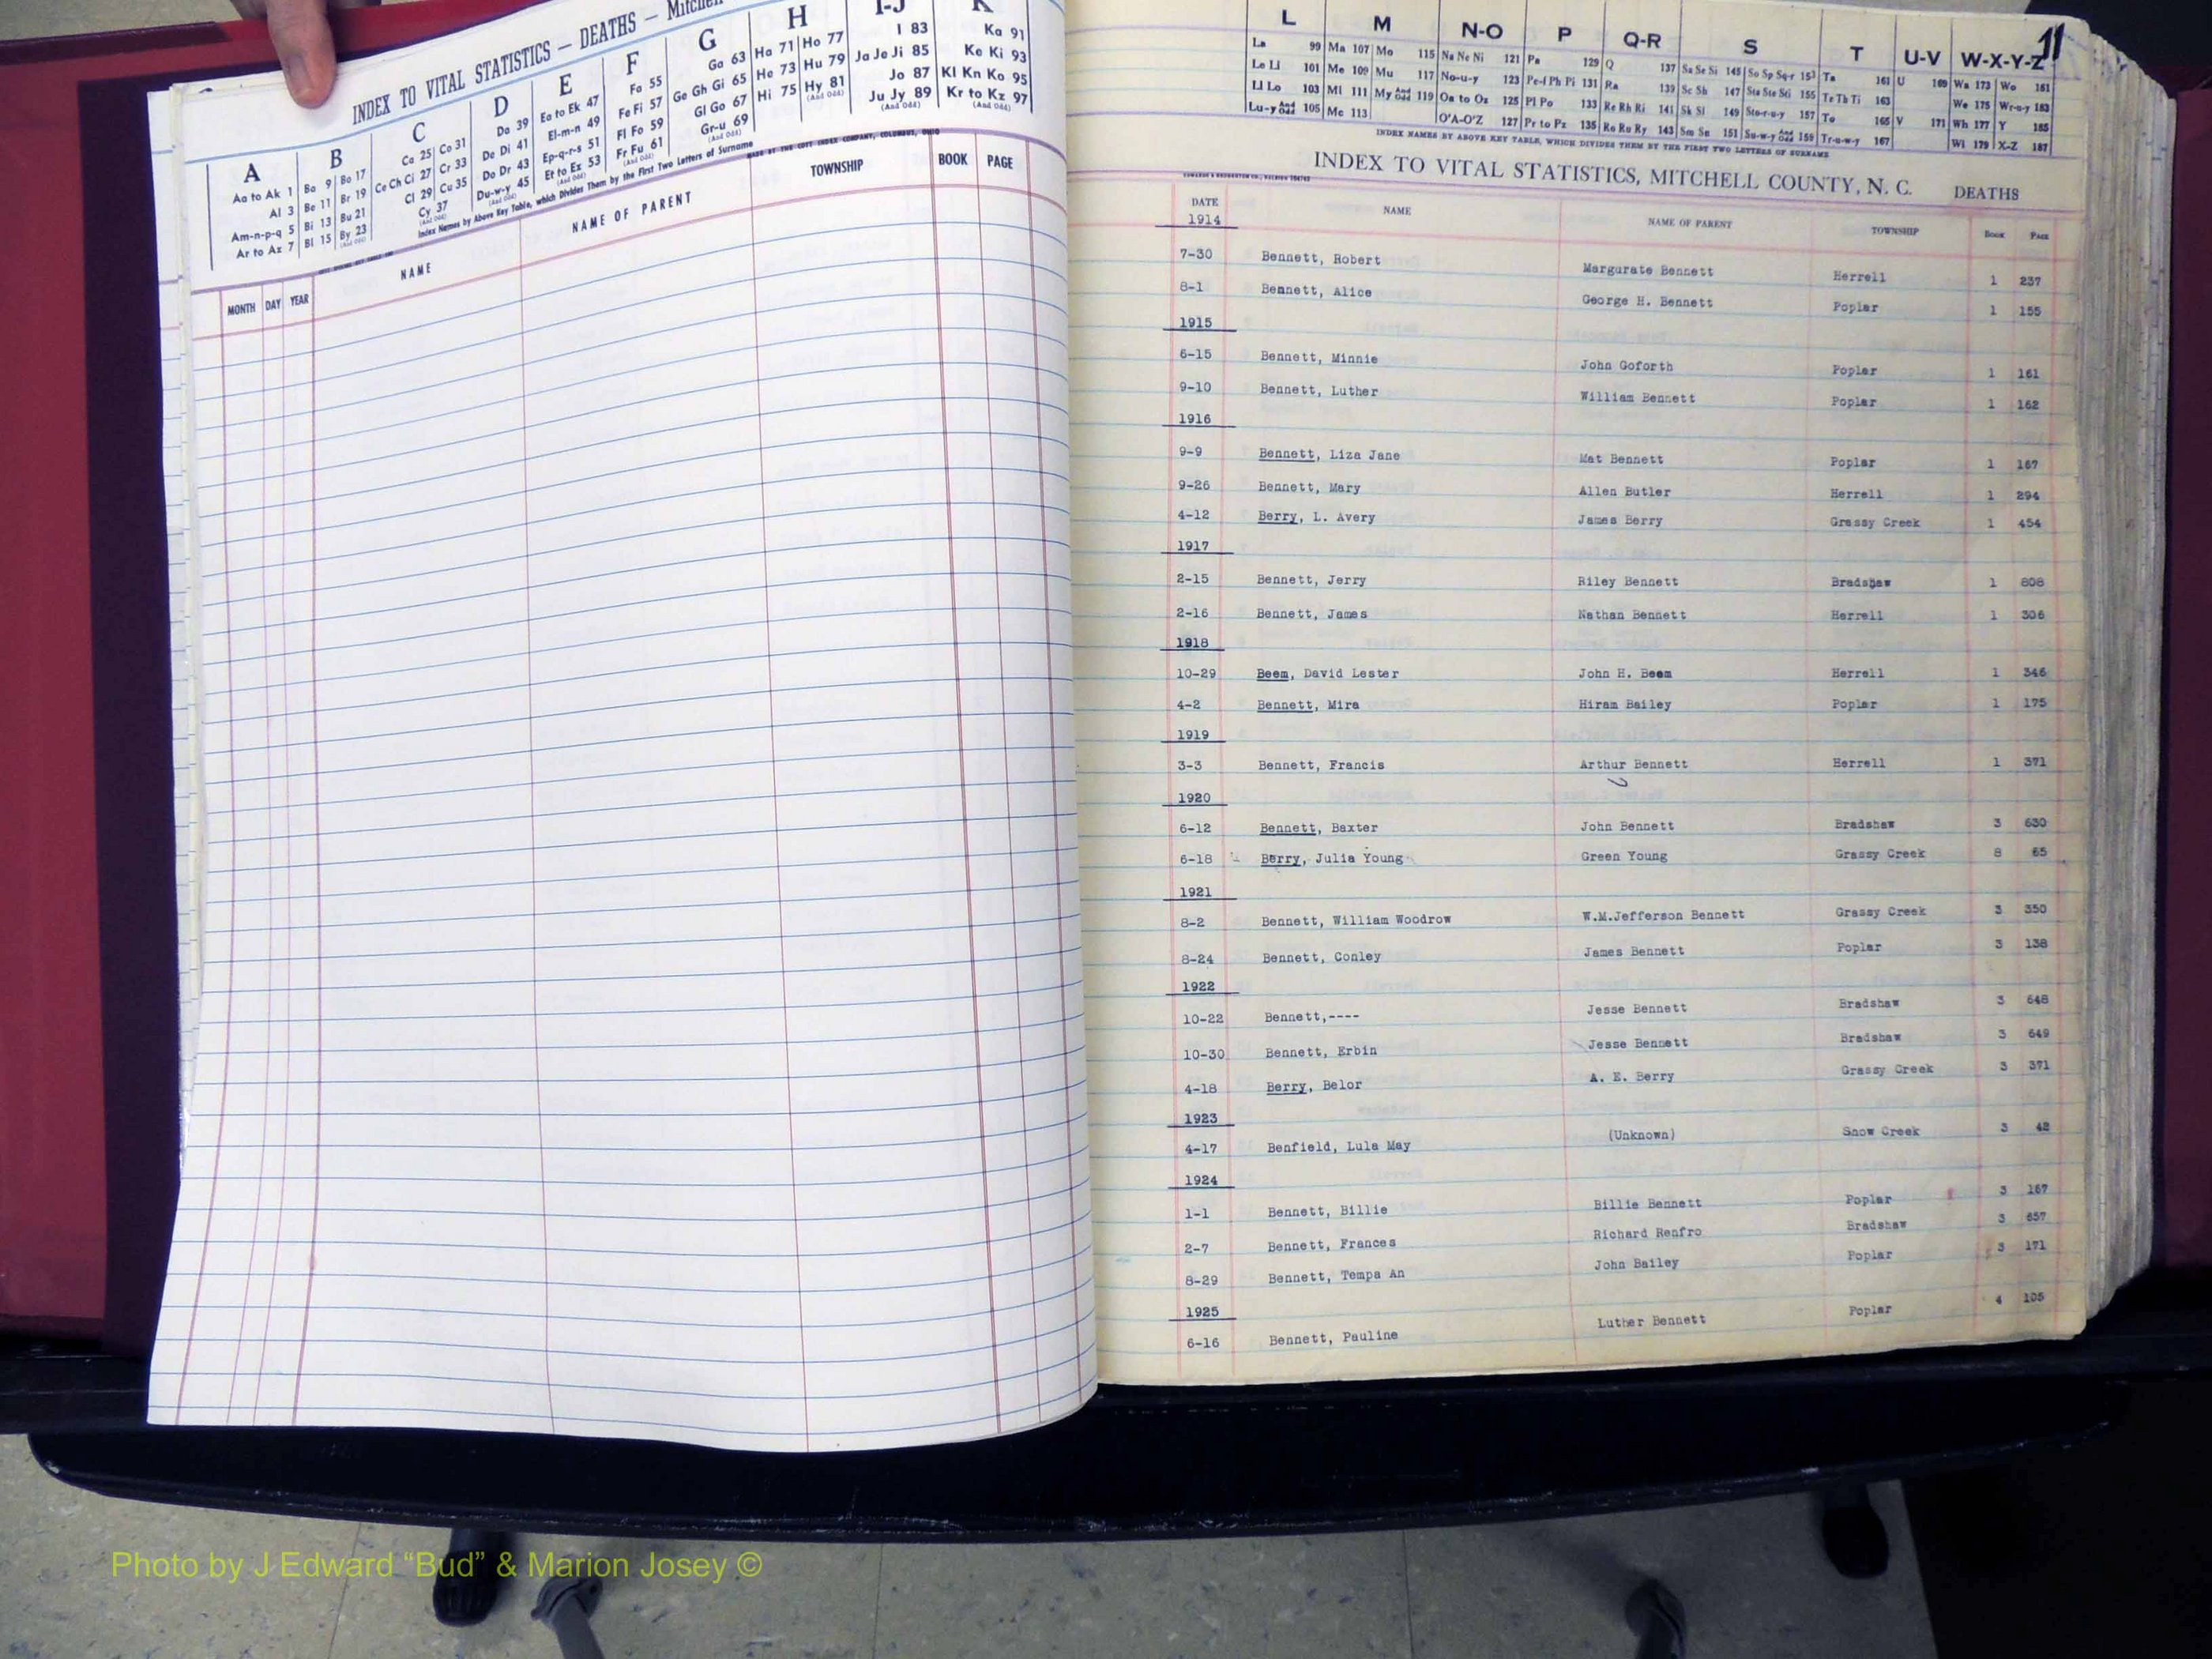 INDEX TO VITAL STATISTICS — DEATHS — Mitchell
A
Aa to Ak 1
Al 3
Am-n-p-q 5
Ar to Az 7
B
Ba 9 Bo 17
Be 11 Br 19
Bi 13 Bu 21
Bl 15 By 23
(And Odd)
C
Ca 25 Co 31
Ce Ch Ci 27 Cr 33
Cl 29 Cu 35
Cy 37
(And Odd)
D
Da 39
De Di 41
Do Dr 43
Du-w-y 45
(And Odd)
E
Ea to Ek 47
El-m-n 49
Ep-q-r-s 51
Et to Ez 53
(And Odd)
F
Fa 55
Fe Fi 57
Fl Fo 59
Fr Fu 61
(And Odd)
G
Ga 63
Ge Gh Gi 65
Gl Go 67
Gr-u 69
(And Odd)
H
Ha 71 Ho 77
He 73 Hu 79
Hi 75 Hy 81
(And Odd)
I-J
I 83
Ja Je Ji 85
Jo 87
Ju Jy 89
(And Odd)
K
Ka 91
Ke Ki 93
Kl Kn Ko 95
Kr to Kz 97
(And Odd)
Index Names by Above Key Table, which Divides Them by the First Two Letters of Surname
MADE BY THE COTT INDEX COMPANY, COLUMBUS, OHIO
MONTH DAY YEAR NAME NAME OF PARENT TOWNSHIP BOOK PAGE
11
L M N-O P Q-R S T U-V W-X-Y-Z
La 99 Ma 107 Mo 115 Na Ne Ni 121 Pa 129 Q 137 Sa Se Si 145 So Sp Sq-r 153 Ta 161 U 169 Wa 173 Wo 181
Le Li 101 Me 109 Mu 117 No-u-y 123 Pe-f Ph Pi 131 Ra 139 Sc Sh 147 Sta Ste Sti 155 Te Th Ti 163 We 175 Wr-u-y 183
Ll Lo 103 Mi 111 My And Odd 119 Oa to Oz 125 Pl Po 133 Re Rh Ri 141 Sk Sl 149 Sto-r-u-y 157 To 165 V 171 Wh 177 Y 185
Lu-y And Odd 105 Mc 113 O'A-O'Z 127 Pr to Pz 135 Ro Ru Ry 143 Sm Sn 151 Su-w-y And Odd 159 Tr-u-w-y 167 Wi 179 X-Z 187
INDEX NAMES BY ABOVE KEY TABLE, WHICH DIVIDES THEM BY THE FIRST TWO LETTERS OF SURNAME
INDEX TO VITAL STATISTICS, MITCHELL COUNTY, N. C. DEATHS
DATE NAME NAME OF PARENT TOWNSHIP BOOK PAGE
1914
7-30 Bennett, Robert Margurate Bennett Herrell 1 237
8-1 Bennett, Alice George H. Bennett Poplar 1 155
1915
6-15 Bennett, Minnie John Goforth Poplar 1 161
9-10 Bennett, Luther William Bennett Poplar 1 162
1916
9-9 Bennett, Liza Jane Mat Bennett Poplar 1 167
9-26 Bennett, Mary Allen Butler Herrell 1 294
4-12 Berry, L. Avery James Berry Grassy Creek 1 454
1917
2-15 Bennett, Jerry Riley Bennett Bradshaw 1 808
2-16 Bennett, James Nathan Bennett Herrell 1 306
1918
10-29 Beem, David Lester John H. Beem Herrell 1 346
4-2 Bennett, Mira Hiram Bailey Poplar 1 175
1919
3-3 Bennett, Francis Arthur Bennett Herrell 1 371
1920
6-12 Bennett, Baxter John Bennett Bradshaw 3 630
6-18 Berry, Julia Young Green Young Grassy Creek 8 65
1921
8-2 Bennett, William Woodrow W.M.Jefferson Bennett Grassy Creek 3 350
8-24 Bennett, Conley James Bennett Poplar 3 138
1922
10-22 Bennett,---- Jesse Bennett Bradshaw 3 648
10-30 Bennett, Erbin Jesse Bennett Bradshaw 3 649
4-18 Berry, Belor A. E. Berry Grassy Creek 3 371
1923
4-17 Benfield, Lula May (Unknown) Snow Creek 3 42
1924
1-1 Bennett, Billie Billie Bennett Poplar 3 167
2-7 Bennett, Frances Richard Renfro Bradshaw 3 657
8-29 Bennett, Tempa An John Bailey Poplar 3 171
1925
6-16 Bennett, Pauline Luther Bennett Poplar 4 105
Photo by J Edward “Bud” & Marion Josey ©